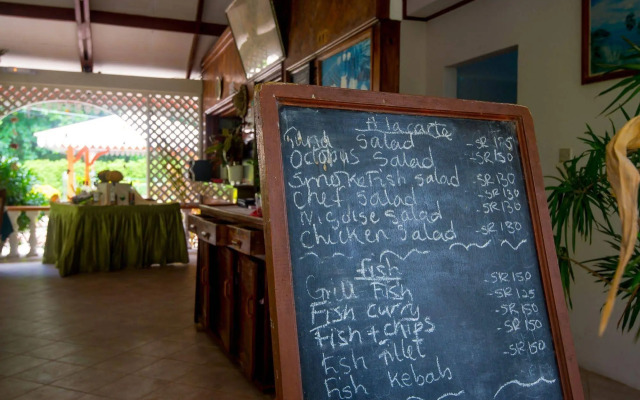 A la carte
Tuna Salad -SR
Octopus Salad -SR150
Smoke Fish Salad -SR130
Chef Salad -SR130
Niçoise Salad -SR130
Chicken Salad -SR130
Fish
Grill Fish -SR150
Fish curry -SR125
Fish + chips -SR150
Fish fillet -SR150
Fish kebab -SR150